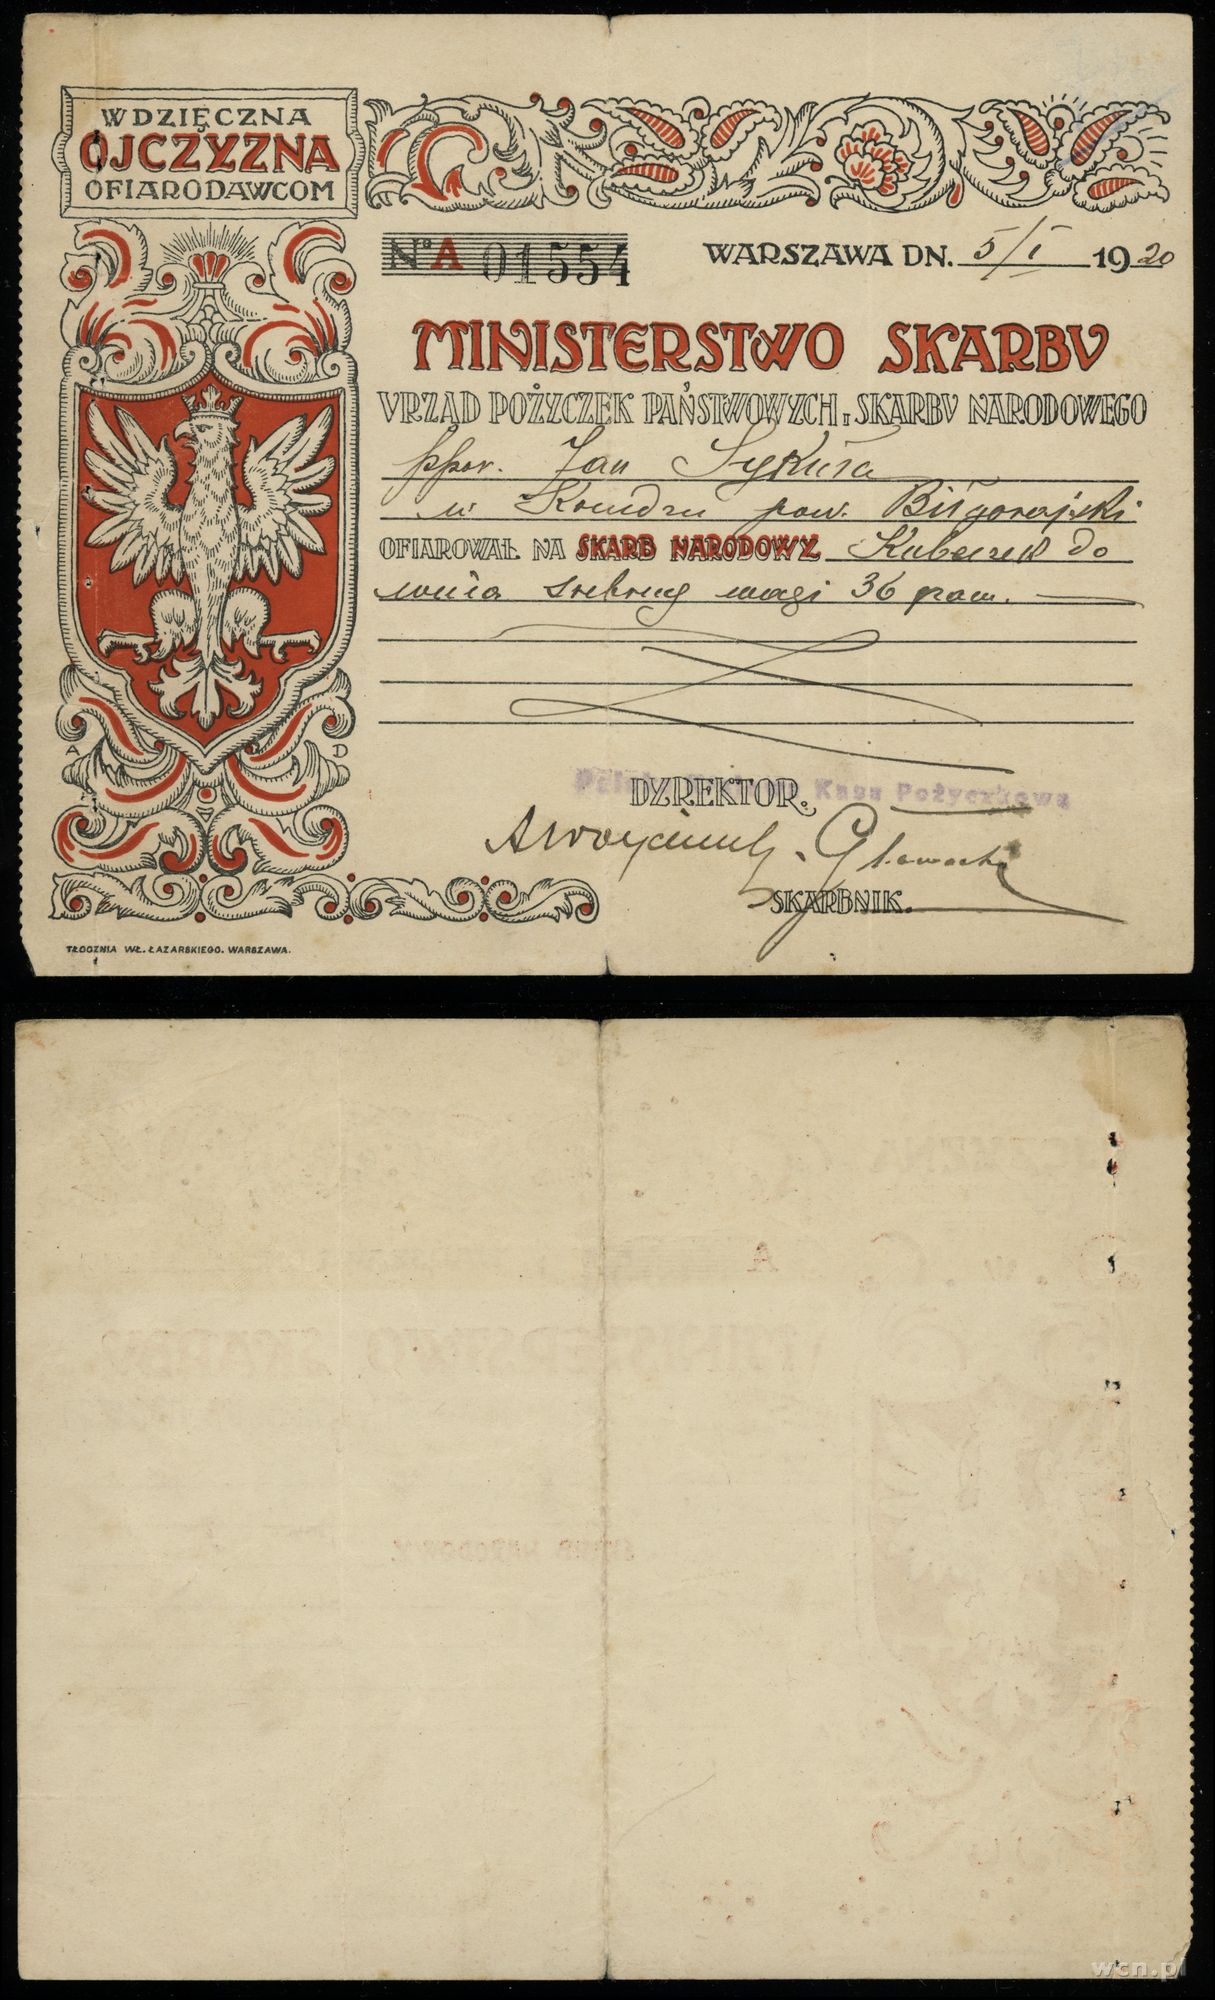 WDZIĘCZNA
OJCZYZNA
OFIARODAWCOM
No A 01554
WARSZAWA DN. 5/I 1920
MINISTERSTWO SKARBV
VRZĄD POŻYCZEK PAŃSTWOWYCH I SKARBV NARODOWEGO
ppor. Jan Sykuła
w pow. Biłgorajski
OFIAROWAŁ NA SKARB NARODOWY Kubeczek do
wina srebrny wagi 36 gram.
A D
DYREKTOR.
Kasa Pożyczkowa
SKARBNIK.
TŁOCZNIA WŁ. ŁAZARSKIEGO. WARSZAWA.
wcn.pl